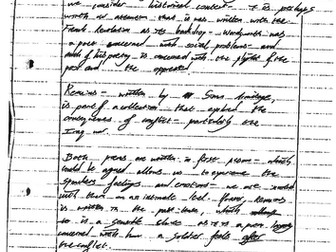 we consider historical context - it is perhaps
worth of attention that is was written with the
French Revolution as its backdrop - Wordsworth was
a poet concerned with social problems - and
much of his poetry is concerned with the plight of the
poor and the oppressed.
Remains - written by Simon Armitage,
is part of a collection that explored the
consequences of conflict - particularly the
Iraq war.
Both poems are written in first person - which
could be argued allows us to experience the
speakers feelings and emotions - we are
with them on an intimate level. However, Remains
is written in the past tense, which
is a as it is a poem
concerned with how a soldier feels after
the conflict.